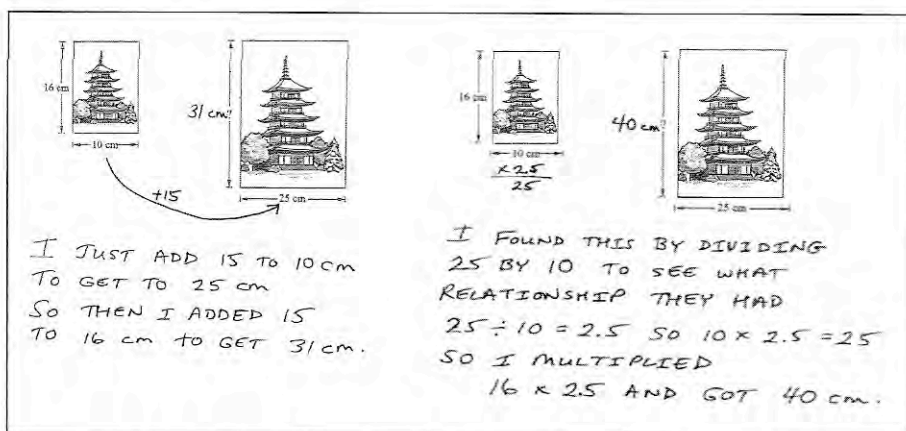 16 cm
10 cm
+15
31 cm?
25 cm
I JUST ADD 15 TO 10 cm
TO GET TO 25 cm
SO THEN I ADDED 15
TO 16 cm to GET 31 cm.
16 cm
10 cm
x 2.5
25
40 cm?
25 cm
I FOUND THIS BY DIVIDING
25 BY 10 TO SEE WHAT
RELATIONSHIP THEY HAD
25 ÷ 10 = 2.5 SO 10 x 2.5 = 25
SO I MULTIPLIED
16 x 2.5 AND GOT 40 cm.